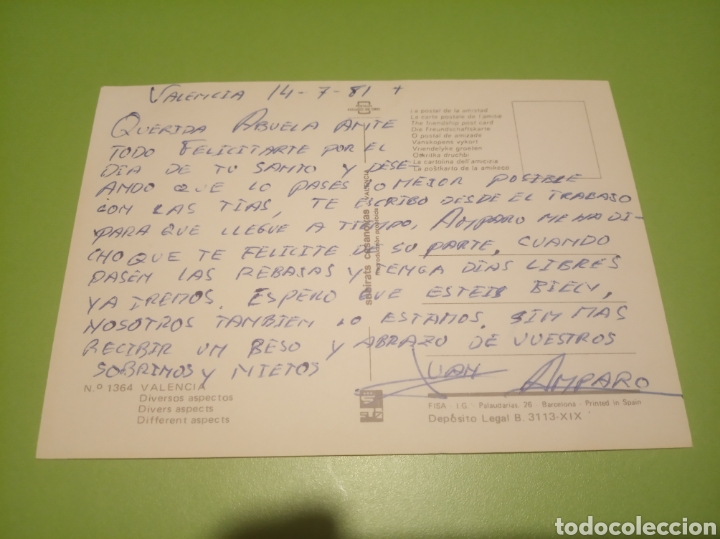 VALENCIA 14-7-81 +
QUERIDA ABUELA ANTE
TODO FELICITARTE POR EL
DIA DE TU SANTO Y DESE-
ANDO QUE LO PASES LO MEJOR POSIBLE
CON LAS TIAS, TE ESCRIBO DESDE EL TRABAJO
PARA QUE LLEGUE A TIEMPO, AMPARO ME HA DI-
CHO QUE TE FELICITE DE SU PARTE, CUANDO
PASEN LAS REBAJAS Y TENGA DIAS LIBRES
YA IREMOS. ESPERO QUE ESTEIS BIEN,
NOSOTROS TAMBIEN LO ESTAMOS. SIN MAS
RECIBIR UN BESO Y ABRAZO DE VUESTROS
SOBRINOS Y NIETOS
JUAN AMPARO
La postal de la amistad
La carte postale de l'amitié
The friendship post card
Die Freundschaftskarte
O postal de amizade
Vänskapens vykort
Vriendelyke groeten
La cartolina dell'amicizia
N.º 1364 VALENCIA
Diversos aspectos
Divers aspects
Different aspects
subirats casanovas
VALENCIA
FISA I.G. Palaudarias, 26 - Barcelona - Printed in Spain
Depósito Legal B. 3113-XIX
todocoleccion
todocoleccion.net